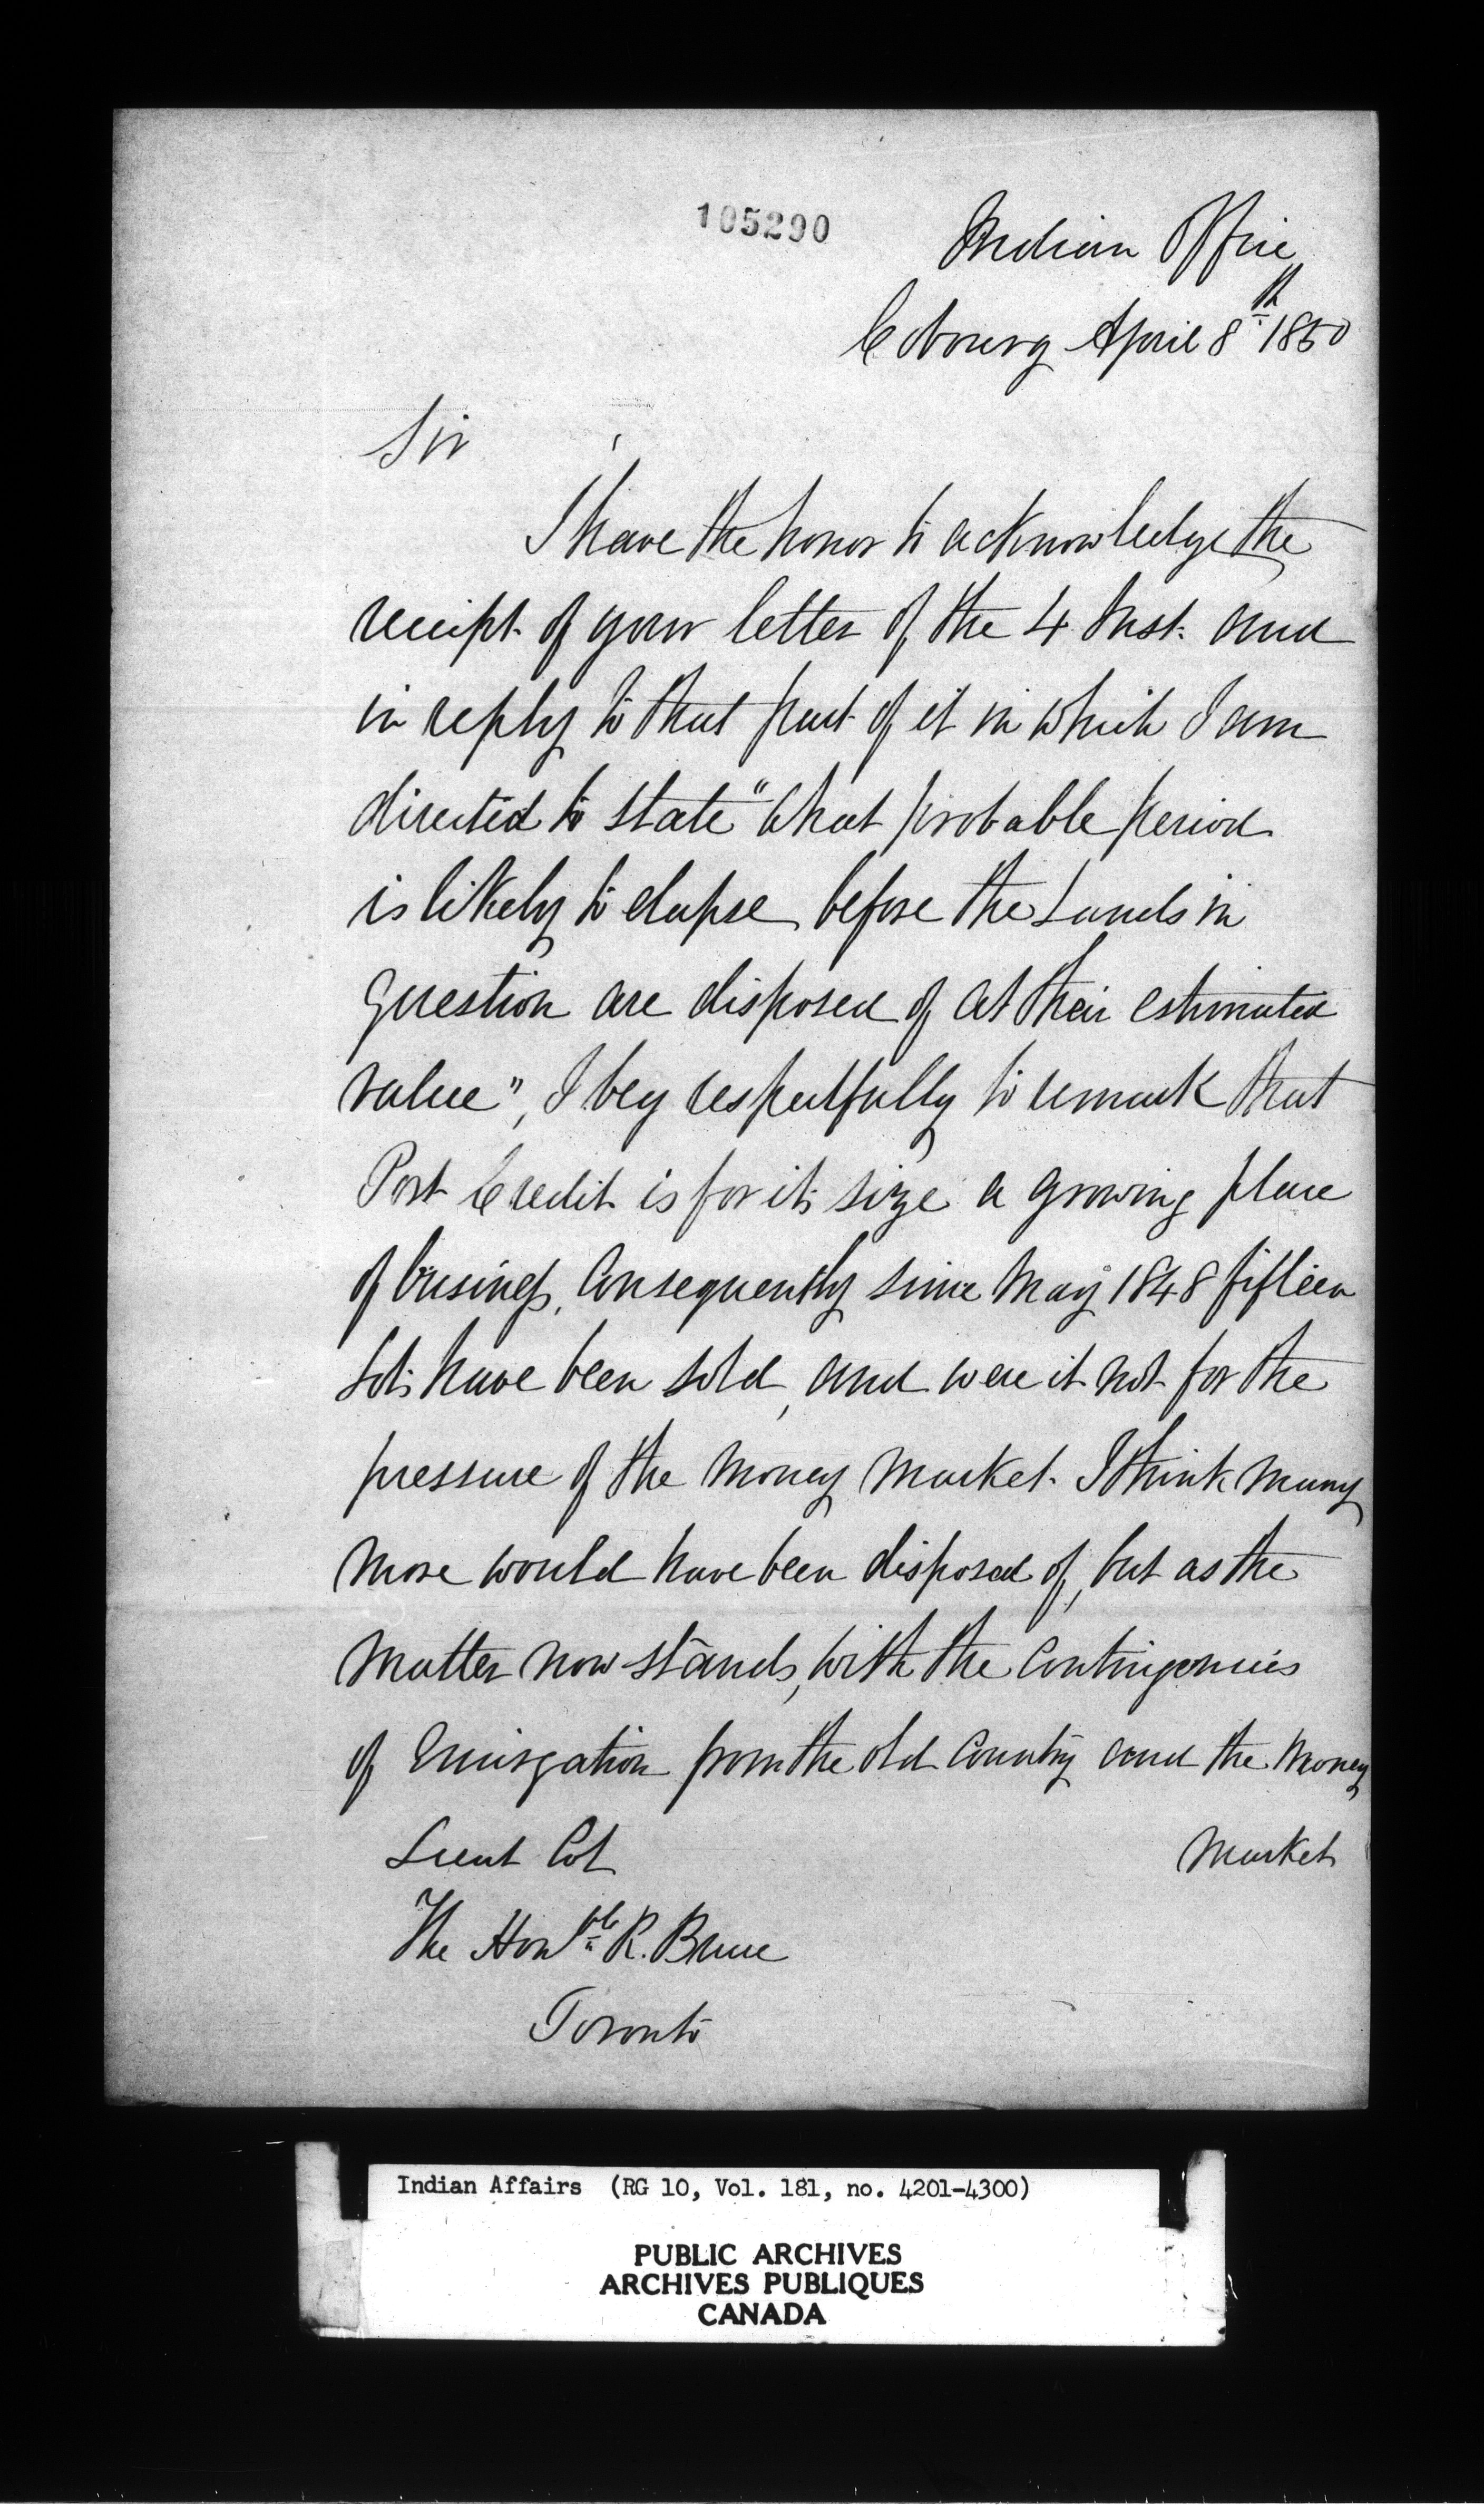 105290
Indian Office
Cobourg April 8th 1850
Sir
I have the honor to acknowledge the
receipt of your letter of the 4 Inst. and
in reply to that part of it in which I am
directed to state "What probable period
is likely to elapse before the Lands in
question are disposed of at their estimated
value", I beg respectfully to remark that
Port Credit is for its size a growing place
of business, Consequently since May 1848 fifteen
Lots have been sold, and were it not for the
pressure of the Money Market. I think many
more would have been disposed of, but as the
Matter now stands, with the Contingencies
of Emigration from the old Country and the Money
Market
Lieut Col
The Honble R. Bruce
Toronto
Indian Affairs (RG 10, Vol. 181, no. 4201-4300)
PUBLIC ARCHIVES
ARCHIVES PUBLIQUES
CANADA